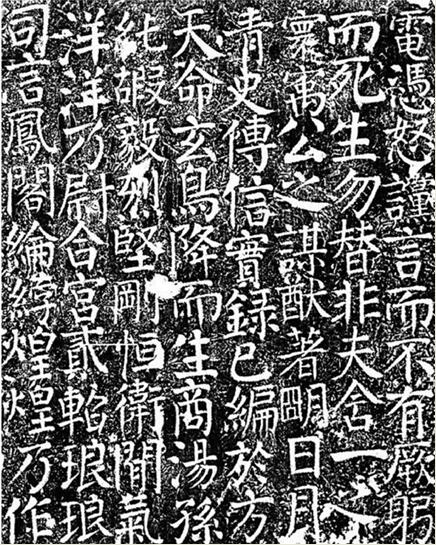 電憑怒謹言而不有厥躳
而死生勿替非夫含一
寰寓公之謀猷著朙日月
青史傳信實錄已編於方
天命玄鳥降而生商湯孫
純嘏毅烈堅剛恒衛閒氣
洋洋乃尉合宮貳軺琅琅
司言鳳閣綸綍煌煌乃作